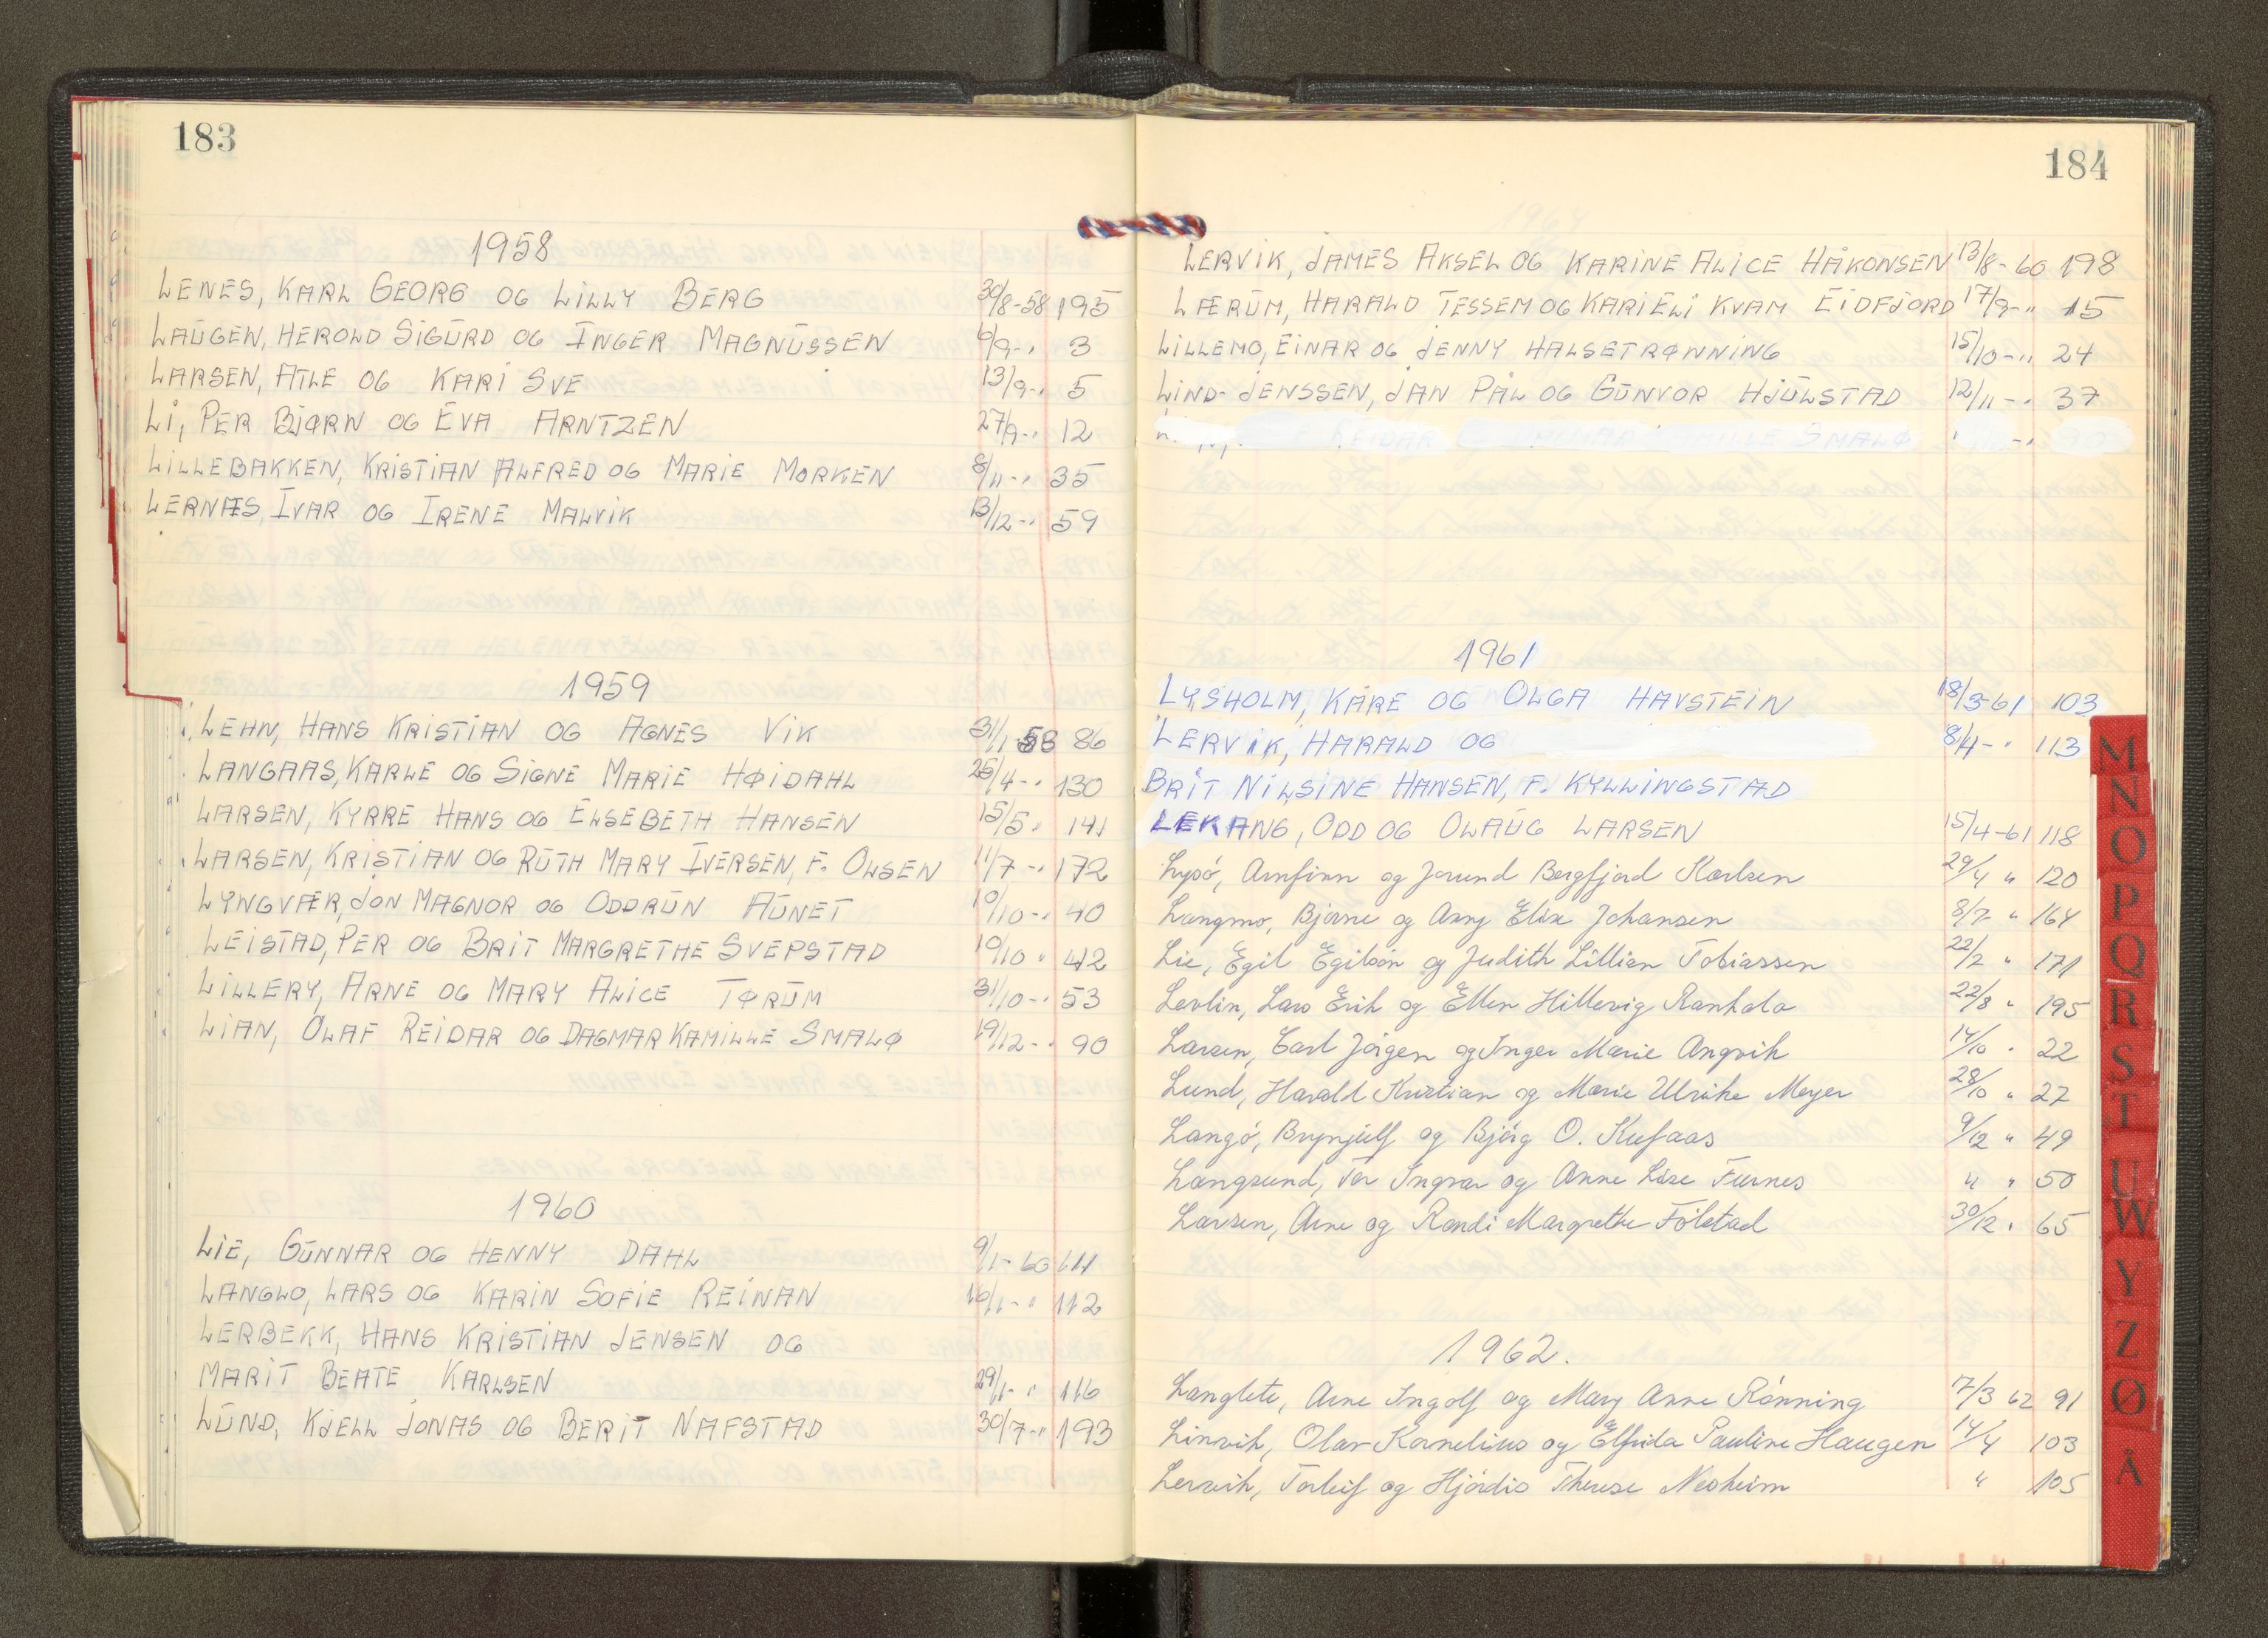 183
1958
LENES, KARL GEORG OG LILLY BERG 30/8-58 195
LAUGEN, HEROLD SIGURD OG INGER MAGNUSSEN 6/9-" 3
LARSEN, ATLE OG KARI SVE 13/9-" 5
LI, PER BJØRN OG EVA ARNTZEN 27/9-" 12
LILLEBAKKEN, KRISTIAN ALFRED OG MARIE MORKEN 8/11-" 35
LERNÆS IVAR OG IRENE MALVIK 13/12-" 59
1959
LEHN, HANS KRISTIAN OG AGNES VIK 31/1 86
LANGAAS, KARLE OG SIGNE MARIE HØIDAHL 25/4-" 130
LARSEN, KYRRE HANS OG ELSEBETH HANSEN 15/5 " 141
LARSEN, KRISTIAN OG RUTH MARY IVERSEN, F. OLSEN 11/7-" 172
LYNGVÆR, JON MAGNOR OG ODDRUN AUNET 10/10-" 40
LEISTAD, PER OG BRIT MARGRETHE SVEPSTAD 10/10 " 42
LILLERY, ARNE OG MARY ALICE TØRUM 31/10-" 53
LIAN, OLAF REIDAR OG DAGMAR KAMILLE SMALØ 19/12-" 90
1960
LIE, GUNNAR OG HENNY DAHL 9/1-60 111
LANGLO, LARS OG KARIN SOFIE REINAN 16/1-" 112
LERBEKK, HANS KRISTIAN JENSEN OG
MARIT BEATE KARLSEN 29/1-" 116
LUND, KJELL JONAS OG BERIT NAFSTAD 30/7-" 193
184
LERVIK, JAMES AKSEL OG KARINE ALICE HÅKONSEN 13/8-60 198
LÆRUM, HARALD TESSEM OG KARI ELI KVAM EIDFJORD 17/9-" 15
LILLEMO, EINAR OG JENNY HALSETRØNNING 15/10-" 24
LIND-JENSSEN, JAN PÅL OG GUNVOR HJULSTAD 12/11-" 37
REIDAR SMALØ
1961
LYSHOLM, KÅRE OG OLGA HAVSTEIN 18/3-61 103
LERVIK, HARALD OG 8/4-" 113
BRIT NILSINE HANSEN, F. KYLLINGSTAD
LEKANG, ODD OG OLAUG LARSEN 15/4-61 118
Lysø, Arnfinn og Jorund Bergfjord Karlsen 29/4 " 120
Langmo, Bjarne og Anny Elise Johansen 8/7 " 164
Lie, Egil Egilsøn og Judith Lillian Tobiassen 22/7 " 171
Levlin, Lars Erik og Ellen Hillevig Rankala 22/8 " 195
Larsen, Carl Jørgen og Inger Marie Angvik 14/10 " 22
Lund, Harald Kristian og Marie Ulrike Meyer 28/10 " 27
Langø, Brynjulf og Bjørg O. Kufaas 9/12 " 49
Langsund, Tor Ingvar og Anne Lise Furnes " " 50
Larsen, Arne og Randi Margrethe Følstad 30/12 " 65
1962.
Langlete, Arne Ingolf og Mary Anne Rønning 7/3 62 91
Linvik, Olav Kornelius og Elfrida Pauline Haugen 14/4 103
Lervik, Torleif og Hjørdis Therese Nesheim " 105
M
N
O
P
Q
R
S
T
U
W
Y
Z
Ø
Å